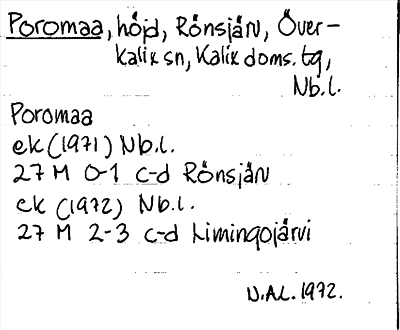 Poromaa, höjd, Rönsjärv, Över-
kalix sn, Kalix doms. tg,
Nb.l.
Poromaa
ek (1971) Nb.l.
27 M 0-1 c-d Rönsjärv
ek (1972) Nb.l.
27 M 2-3 c-d Limingojärvi
N.A.L. 1972.